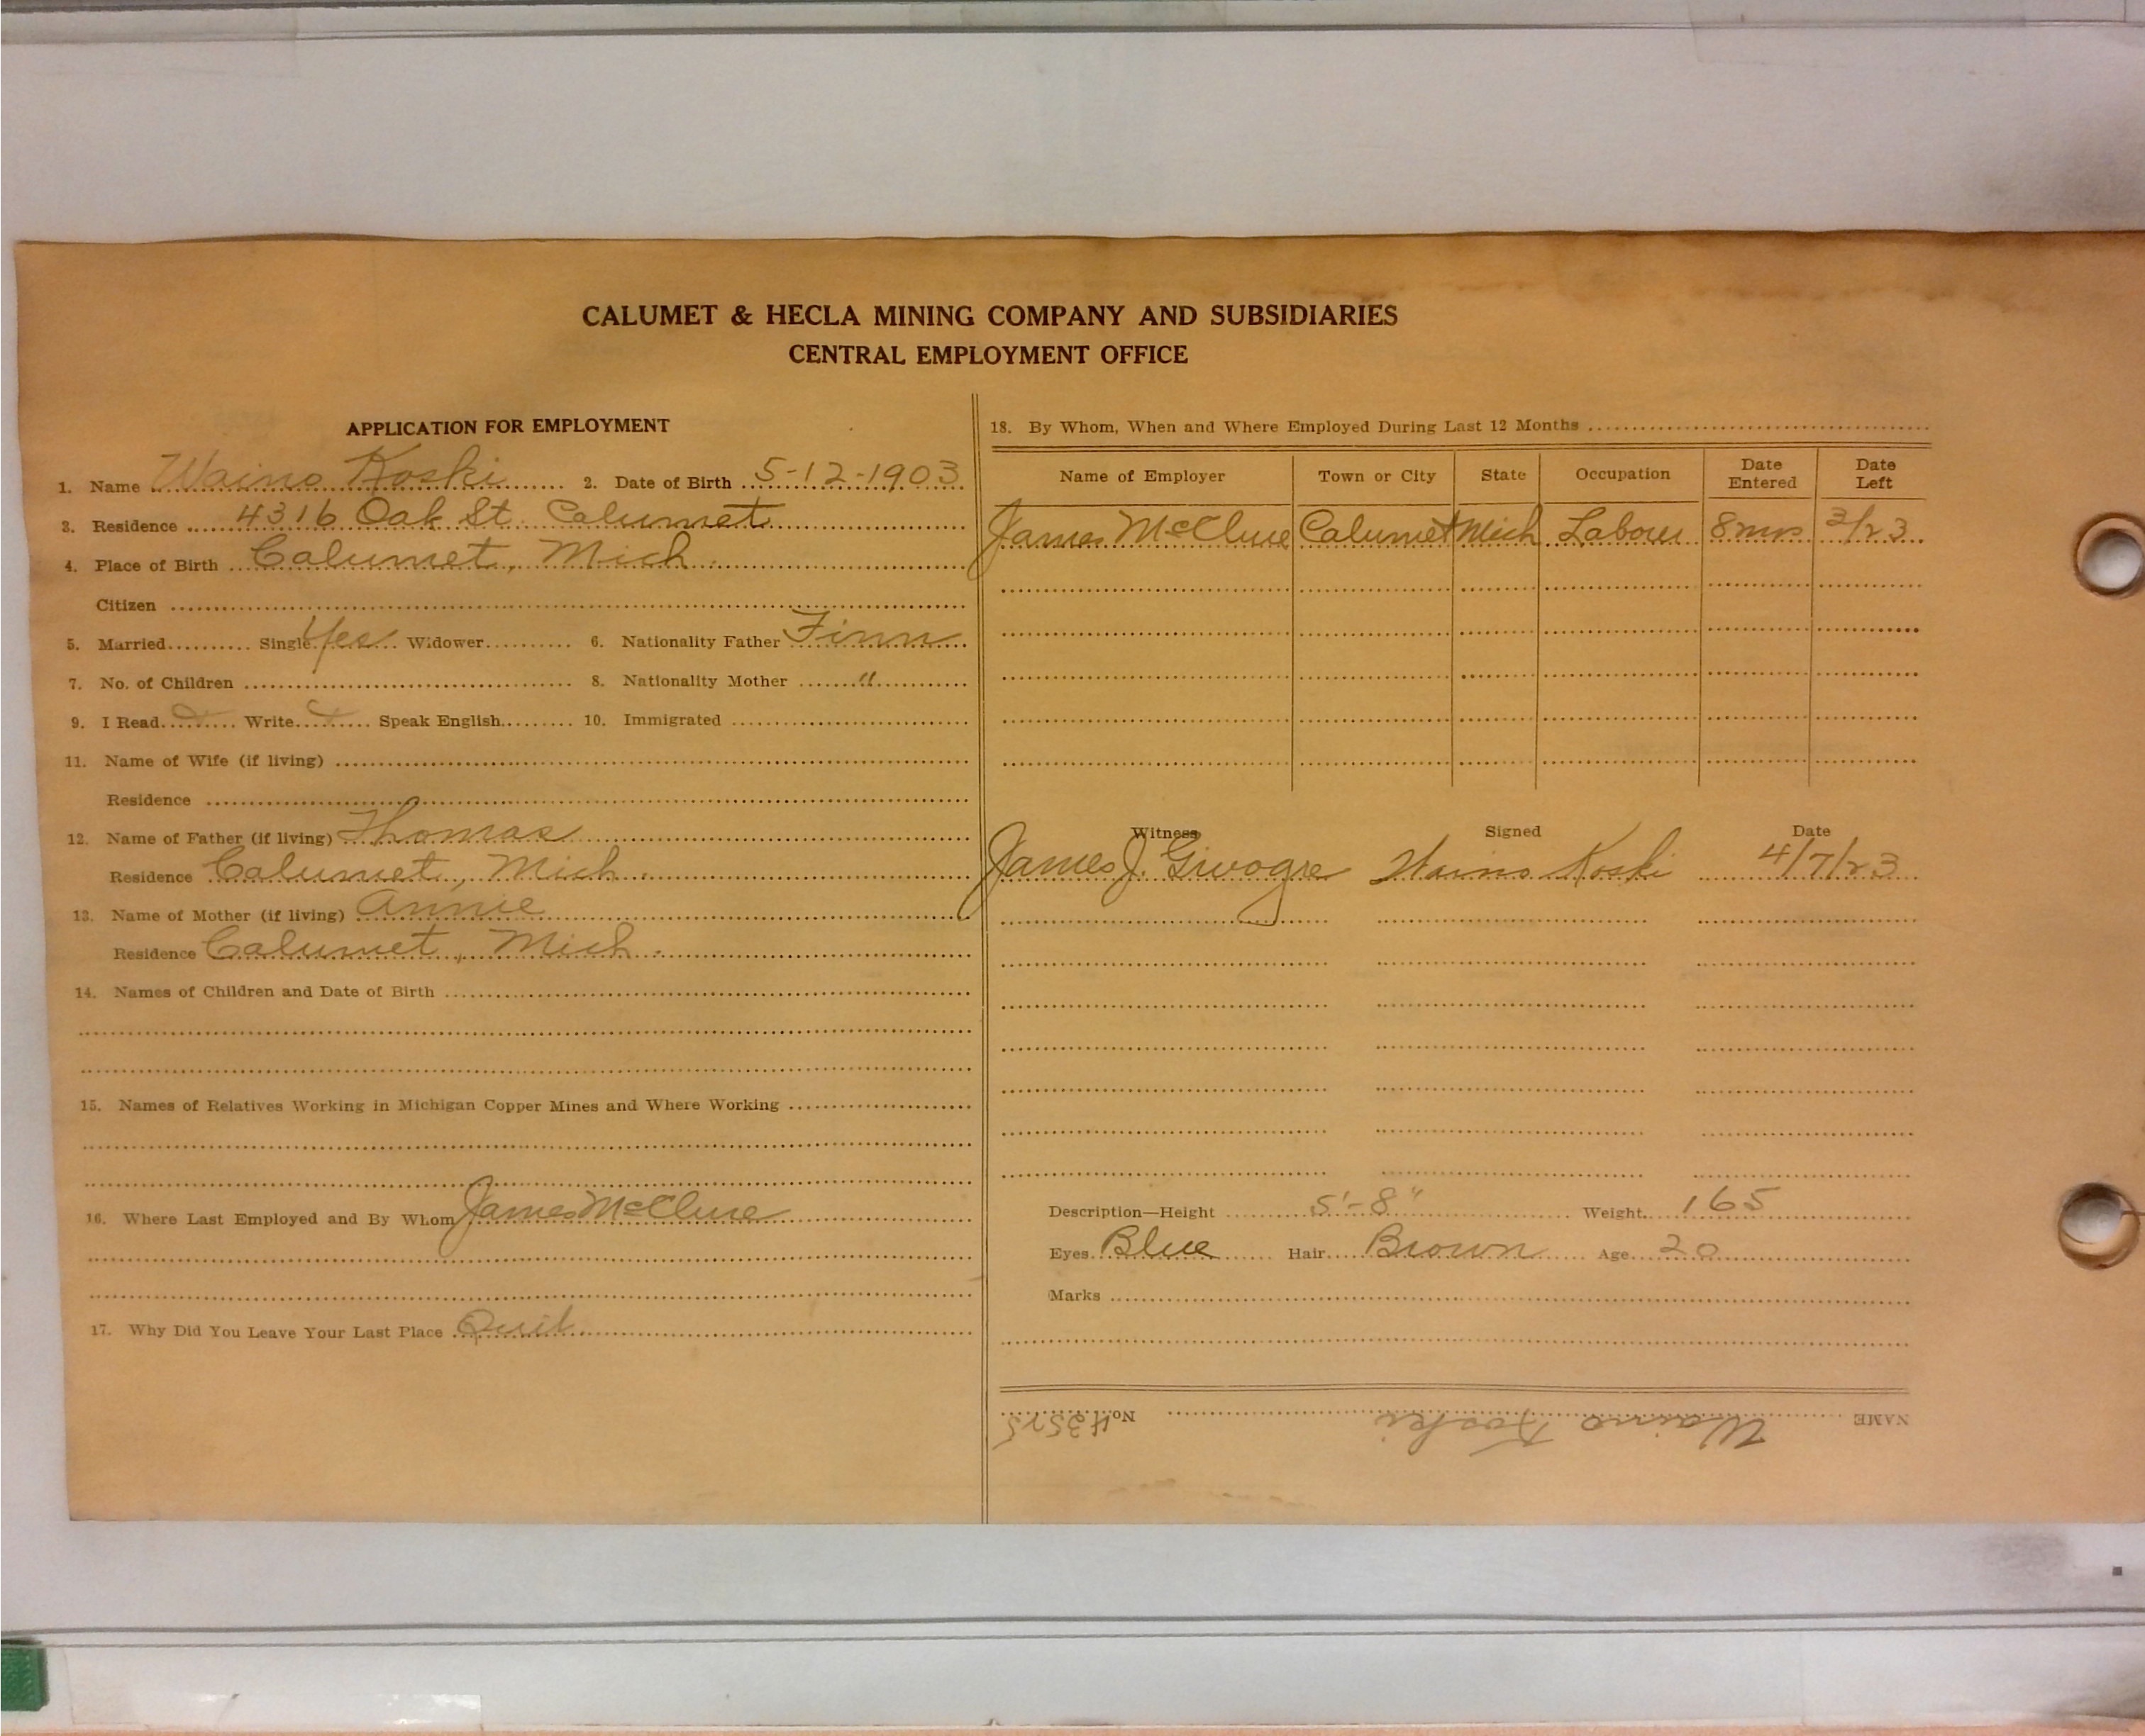 CALUMET & HECLA MINING COMPANY AND SUBSIDIARIES
CENTRAL EMPLOYMENT OFFICE
APPLICATION FOR EMPLOYMENT
1. Name Waino Koski 2. Date of Birth 5-12-1903
3. Residence 4316 Oak St. Calumet
4. Place of Birth Calumet, Mich
Citizen
5. Married Single Yes Widower 6. Nationality Father Finn
7. No. of Children 8. Nationality Mother "
9. I Read Write Speak English 10. Immigrated
11. Name of Wife (if living)
Residence
12. Name of Father (if living) Thomas
Residence Calumet, Mich.
13. Name of Mother (if living) Annie
Residence Calumet, Mich.
14. Names of Children and Date of Birth
15. Names of Relatives Working in Michigan Copper Mines and Where Working
16. Where Last Employed and By Whom James McClure
17. Why Did You Leave Your Last Place Quit
18. By Whom, When and Where Employed During Last 12 Months
Name of Employer Town or City State Occupation Date Entered Date Left
James McClure Calumet Mich Labour 8 mos 3/23
Witness Signed Date
James J. Waino Koski 4/7/23
Description—Height 5'-8" Weight 165
Eyes Blue Hair Brown Age 20
Marks
NAME Waino Koski No. 43525